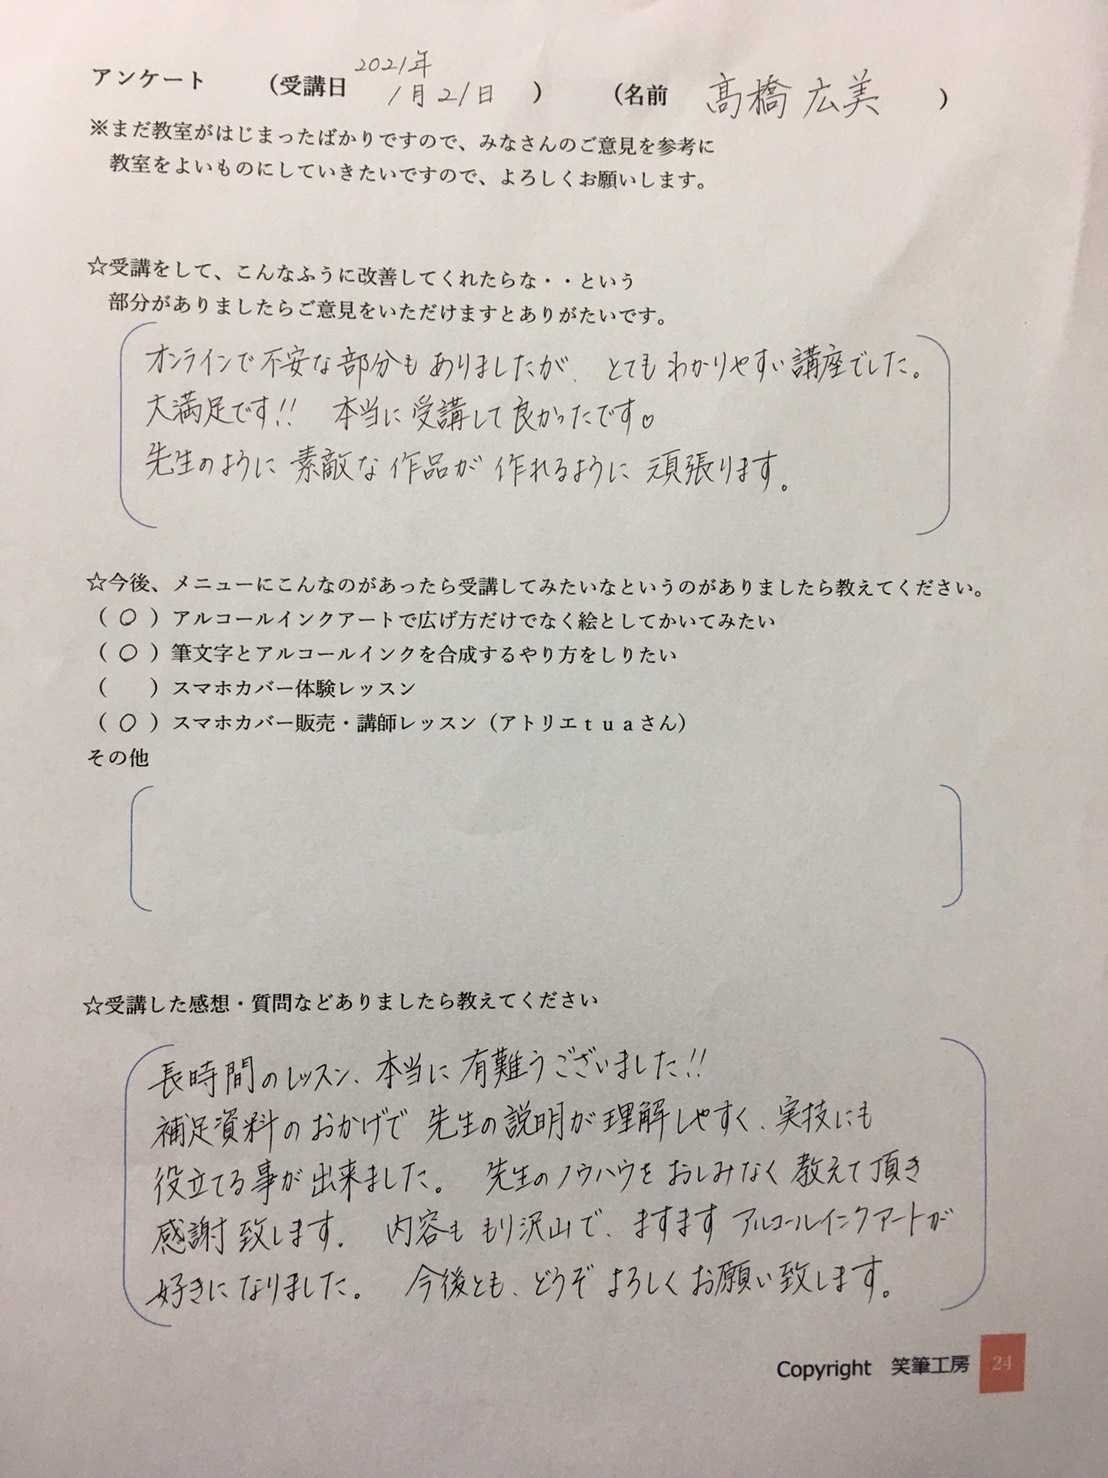 アンケート　（受講日　2021年1月21日　）　（名前　髙橋 広美　）
※まだ教室がはじまったばかりですので、みなさんのご意見を参考に
教室をよいものにしていきたいですので、よろしくお願いします。
☆受講をして、こんなふうに改善してくれたらな・・という
部分がありましたらご意見をいただけますとありがたいです。
オンラインで不安な部分もありましたが、とてもわかりやすい講座でした。
大満足です!!　本当に受講して良かったです♡
先生のように素敵な作品が作れるように頑張ります。
☆今後、メニューにこんなのがあったら受講してみたいなというのがありましたら教えてください。
（ ○ ）アルコールインクアートで広げ方だけでなく絵としてかいてみたい
（ ○ ）筆文字とアルコールインクを合成するやり方をしりたい
（　　）スマホカバー体験レッスン
（ ○ ）スマホカバー販売・講師レッスン（アトリエｔｕａさん）
その他
☆受講した感想・質問などありましたら教えてください
長時間のレッスン、本当に有難うございました!!
補足資料のおかげで先生の説明が理解しやすく、実技にも
役立てる事が出来ました。　先生のノウハウをおしみなく教えて頂き
感謝致します。　内容ももり沢山で、ますますアルコールインクアートが
好きになりました。　今後とも、どうぞよろしくお願い致します。
Copyright　笑筆工房　24